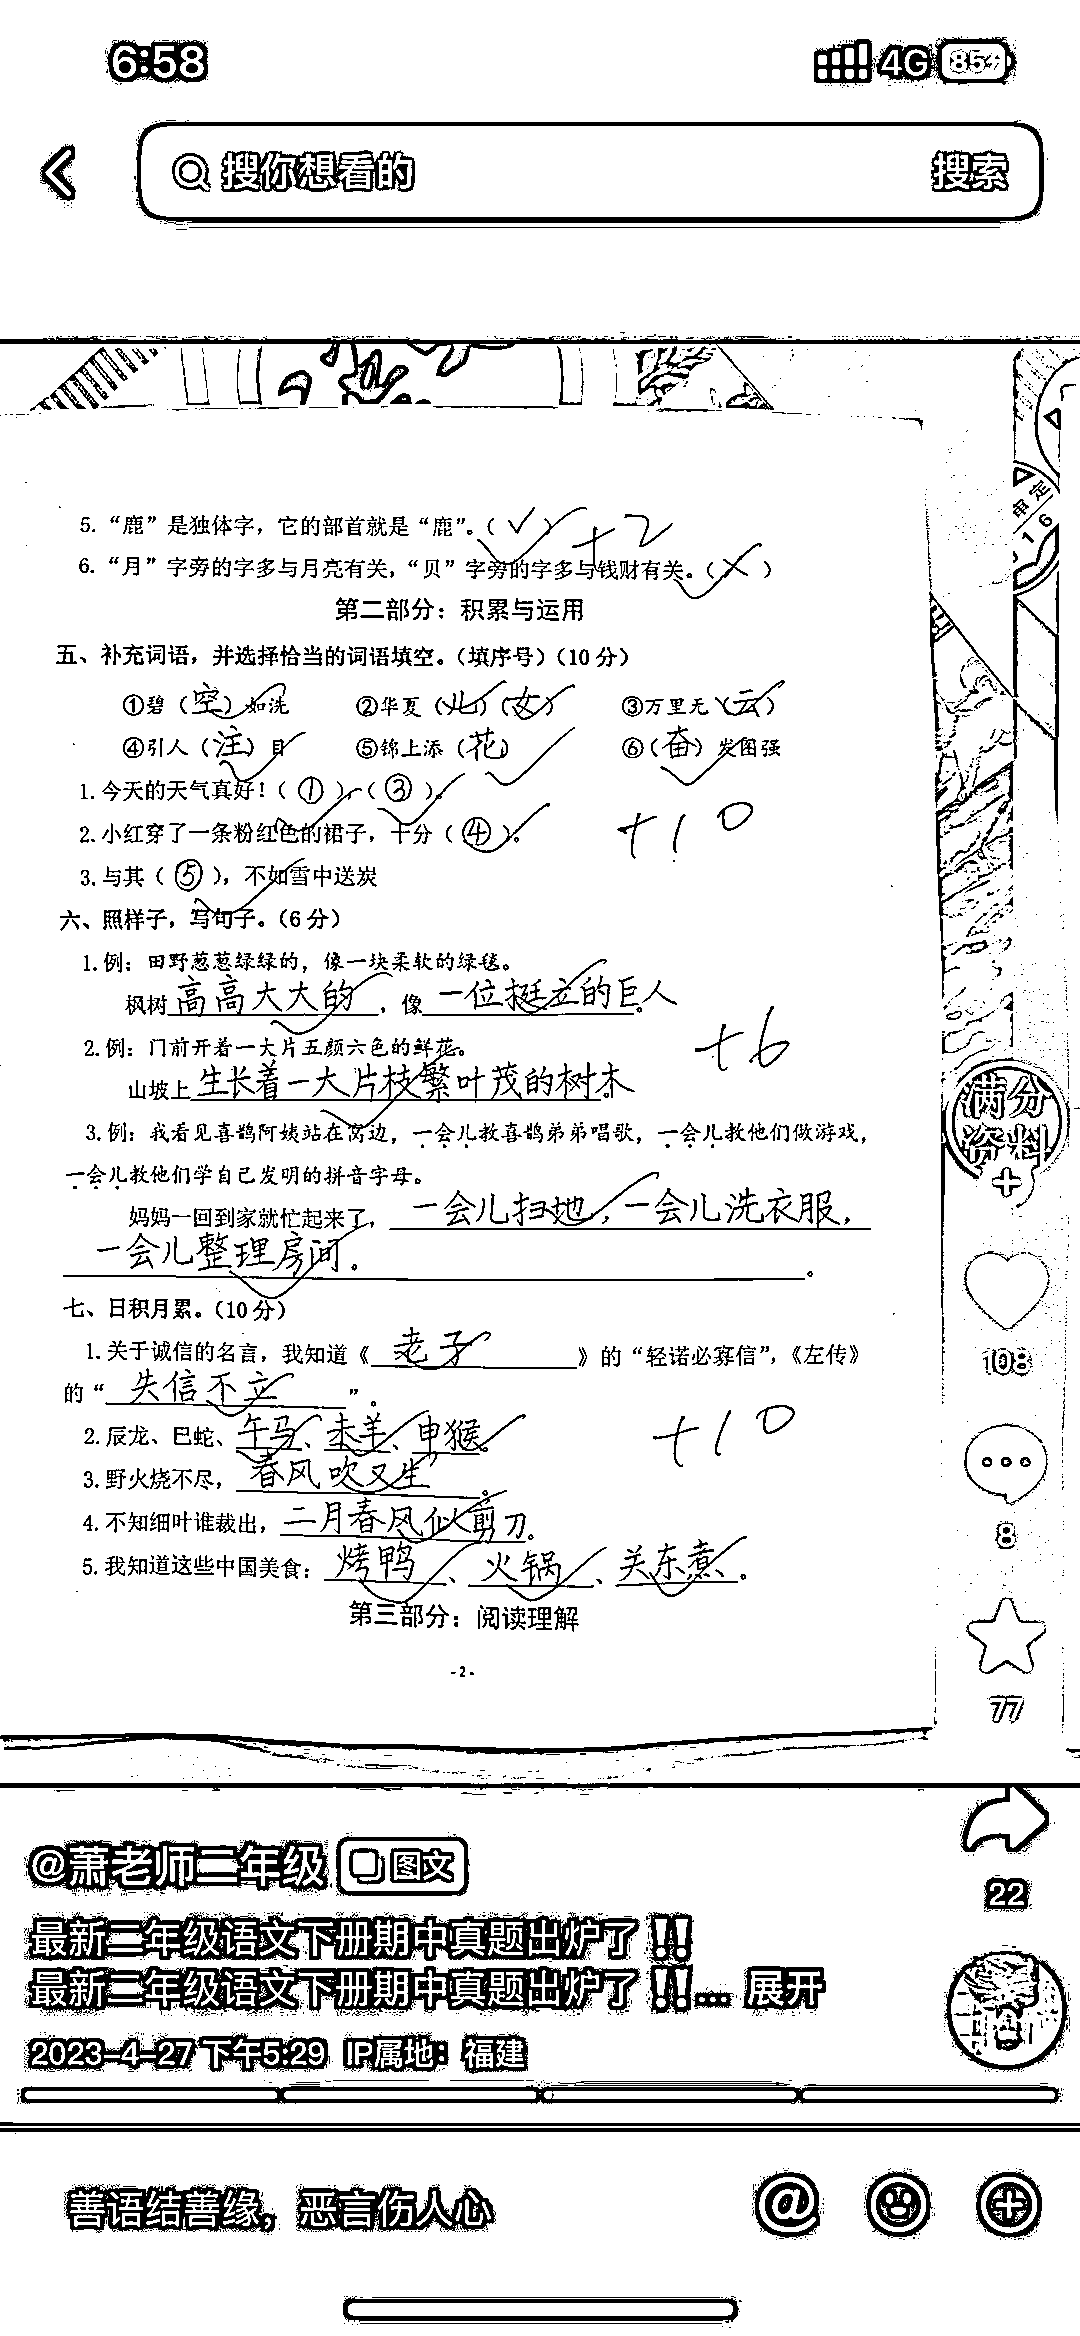 6:58 4G 85
搜你想看的 搜索
审定
016
5. “鹿”是独体字，它的部首就是“鹿”。（✓） +2
6. “月”字旁的字多与月亮有关，“贝”字旁的字多与钱财有关。（✗）
第二部分：积累与运用
五、补充词语，并选择恰当的词语填空。（填序号）（10分）
①碧（空）如洗 ②华夏（儿）（女） ③万里无（云）
④引人（注）目 ⑤锦上添（花） ⑥（奋）发图强
1. 今天的天气真好！（①），（③）。
2. 小红穿了一条粉红色的裙子，十分（④）。 +10
3. 与其（⑤），不如雪中送炭
六、照样子，写句子。（6分）
1. 例：田野葱葱绿绿的，像一块柔软的绿毯。
枫树高高大大的，像一位挺立的巨人。
+6
2. 例：门前开着一大片五颜六色的鲜花。
山坡上生长着一大片枝繁叶茂的树木。
3. 例：我看见喜鹊阿姨站在窝边，一会儿教喜鹊弟弟唱歌，一会儿教他们做游戏，
一会儿教他们学自己发明的拼音字母。
妈妈一回到家就忙起来了，一会儿扫地，一会儿洗衣服，
一会儿整理房间。。
七、日积月累。（10分）
1. 关于诚信的名言，我知道《老子》的“轻诺必寡信”，《左传》
的“失信不立”。
2. 辰龙、巳蛇、午马、未羊、申猴。 +10
3. 野火烧不尽，春风吹又生。
4. 不知细叶谁裁出，二月春风似剪刀。
5. 我知道这些中国美食：烤鸭、火锅、关东煮。
第三部分：阅读理解
-2-
满分
资料
108
8
77
22
@萧老师二年级 图文
最新二年级语文下册期中真题出炉了‼️
最新二年级语文下册期中真题出炉了‼️... 展开
2023-4-27 下午5:29 IP属地：福建
善语结善缘，恶言伤人心